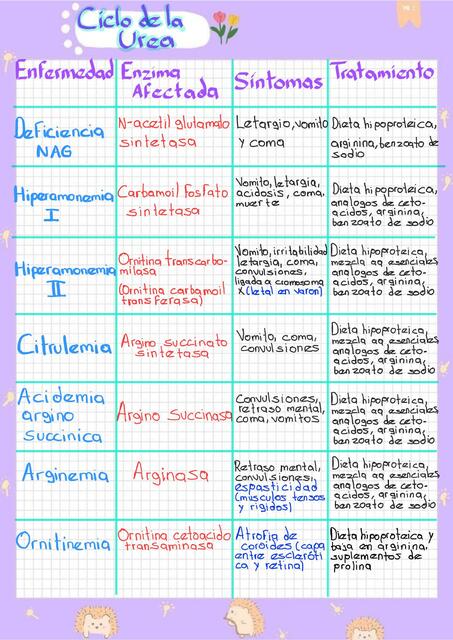 Ciclo de la
Urea
Enfermedad
Enzima
Afectada
Síntomas
Tratamiento
Deficiencia
NAG
N-acetil glutamato
sintetasa
Letargio, vomito
y coma
Dieta hipoproteica,
arginina, benzoato de
sodio
Hiperamonemia
I
Carbamoil fosfato
sintetasa
Vomito, letargia,
acidosis, coma,
muerte
Dieta hipoproteica,
analogos de ceto-
acidos, arginina,
benzoato de sodio
Hiperamonemia
II
Ornitina transcarbo-
milasa
(Ornitina carbamoil
transferasa)
Vomito, irritabilidad
letargia, coma,
convulsiones,
ligada a cromosoma
X (letal en varon)
Dieta hipoproteica,
mezcla aa esenciales
analogos de ceto-
acidos, arginina,
benzoato de sodio
Citrulemia
Argino succinato
sintetasa
Vomito, coma,
convulsiones
Dieta hipoproteica,
mezcla aa esenciales
analogos de ceto-
acidos, arginina,
benzoato de sodio
Acidemia
argino
succinica
Argino Succinasa
Convulsiones,
retraso mental,
coma, vomitos
Dieta hipoproteica,
mezcla aa esenciales
analogos de ceto-
acidos, arginina,
benzoato de sodio
Arginemia
Arginasa
Retraso mental,
convulsiones,
espasticidad
(musculos tensos
y rigidos)
Dieta hipoproteica,
mezcla aa esenciales
analogos de ceto-
acidos, arginina,
benzoato de sodio
Ornitinemia
Ornitina cetoacido
transaminasa
Atrofia de
coroides (capa
entre escleróti
ca y retina)
Dieta hipoproteica y
baja en arginina,
suplementos de
prolina